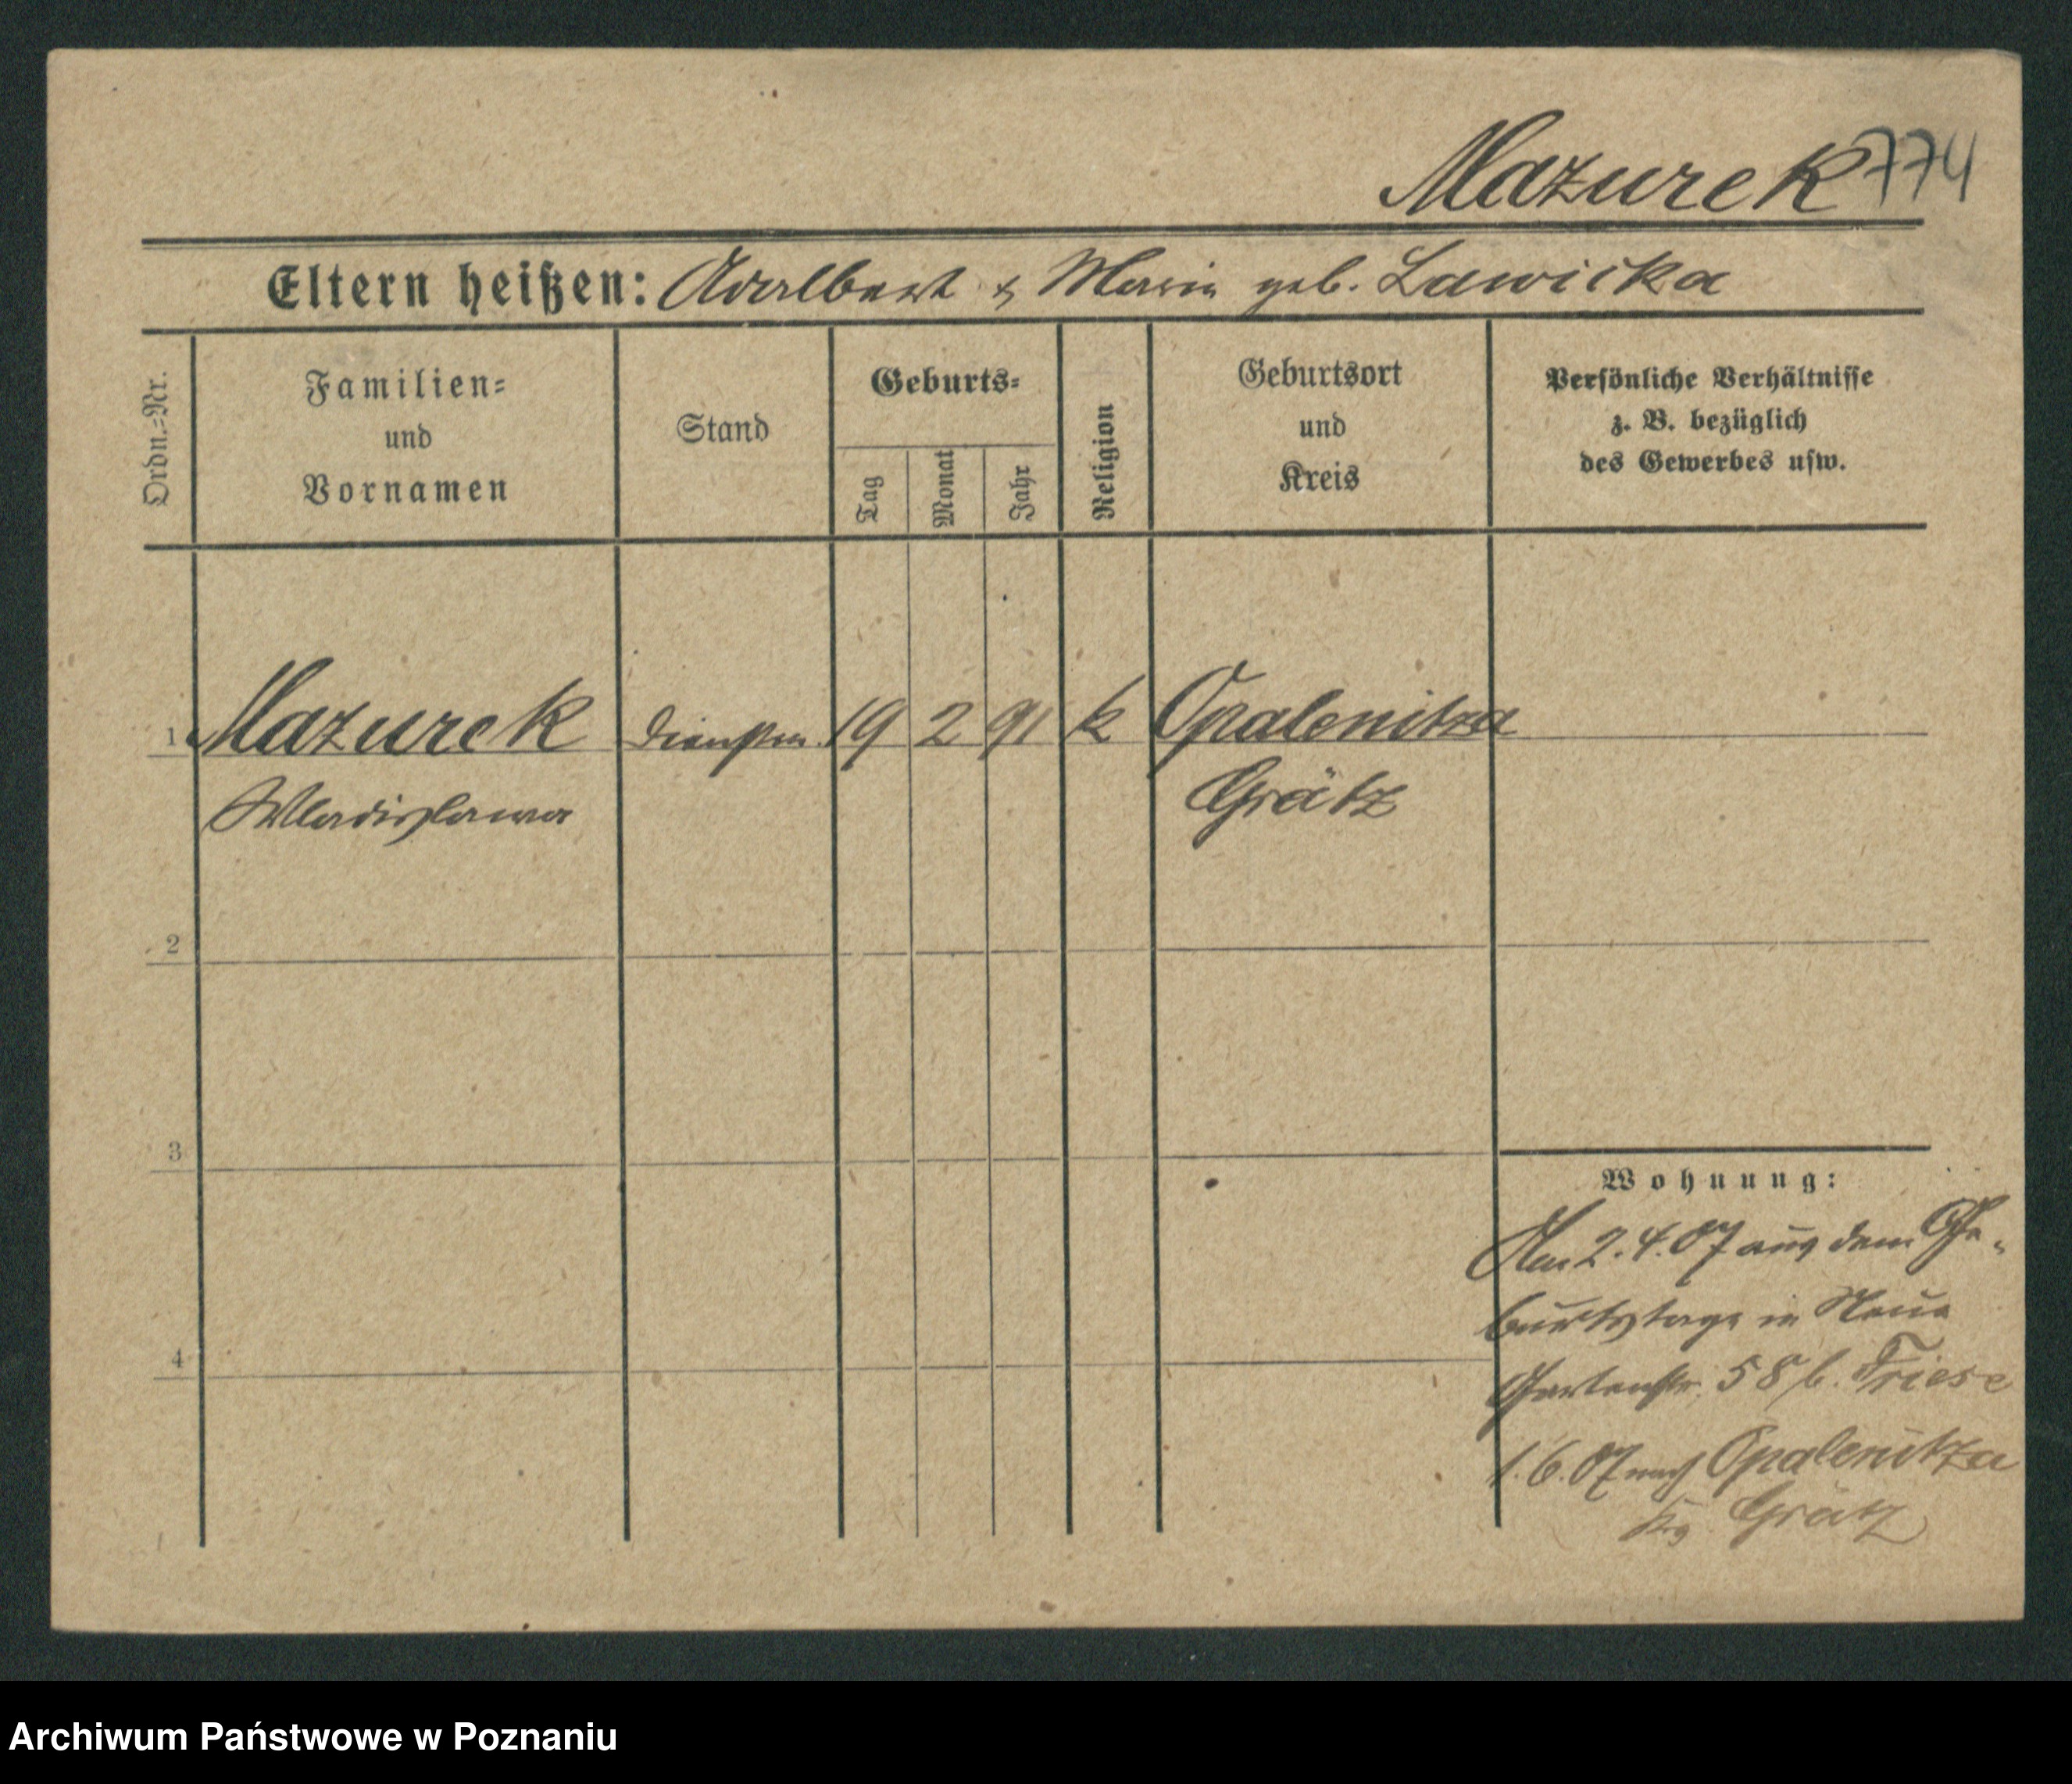 Mazurek 774
Eltern heißen: Adalbert & Marie geb. Lawicka
Ordn.-Nr.
Familien-
und
Vornamen
Stand
Geburts-
Tag
Monat
Jahr
Religion
Geburtsort
und
Kreis
Persönliche Verhältnisse
z. B. bezüglich
des Gewerbes usw.
1 Mazurek Dienstm. 19 2 91 k Opalenitza
Wladislawa Grätz
2
3
Wohnung:
Am 2.4.07 aus dem Ge-
burtstage in Neue
4
Gartenstr. 58 b. Friese
1.6.07 nach Opalenitza
Grätz
Archiwum Państwowe w Poznaniu